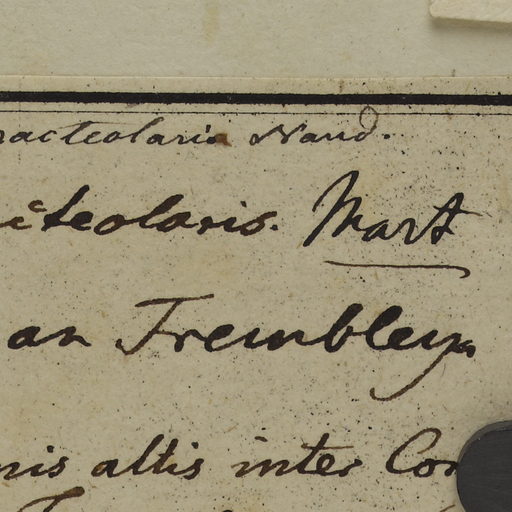 racteolaria Naud.
cteolaris. Mart
an Trembleya
nis altis inter Con